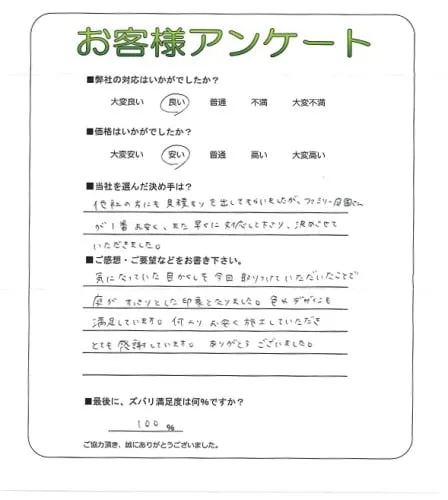 お客様アンケート
■弊社の対応はいかがでしたか?
大変良い 良い 普通 不満 大変不満
■価格はいかがでしたか?
大変安い 安い 普通 高い 大変高い
■当社を選んだ決め手は?
他社の方にも見積もりを出してもらいましたが、ファミリー庭園さん
が1番お安く、また早くに対応して下さり、決めさせて
いただきました。
■ご感想・ご要望などをお書き下さい。
気になっていた目かくしを今回取りつけていただいたことで
庭がすっきりとした印象となりました。色やデザインも
満足しています。何よりお安く施工していただき
とても感謝しています。ありがとうございました。
■最後に、ズバリ満足度は何%ですか?
100 %
ご協力頂き、誠にありがとうございました。